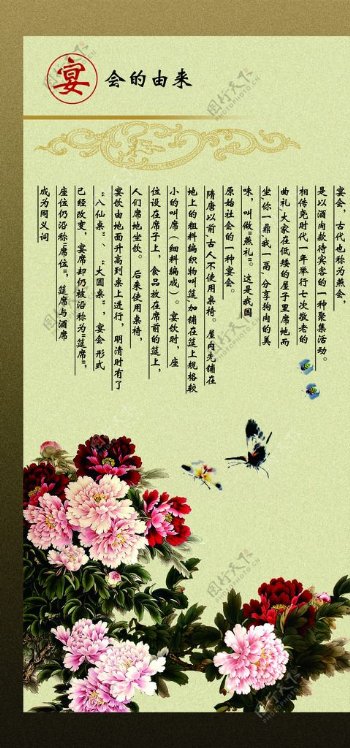 宴会的由来
宴会，古代也称为燕会，
是以酒肉款待宾客的一种聚集活动。
相传尧时代一年举行七次敬老的
曲礼，大家在低矮的屋子里席地而
坐，你一鼎，我一鬲，分享狗肉的美
味，叫做“燕礼”。这是我国
原始社会的一种宴会。
隋唐以前，古人不使用桌椅。屋内先铺在
地上的粗料编织物叫筵，加铺在筵上规格较
小的叫席（细料编成）。宴饮时，座
位设在席子上，食品放在席前的筵上，
人们席地坐饮。后来使用桌椅，
宴饮由地面升高到桌上进行，明清时有了
“八仙桌”、“大圆桌”，宴会形式
已经改变，宴席却仍被沿称为筵席”，
座位仍沿称“席位”。筵席与酒席
成为同义词